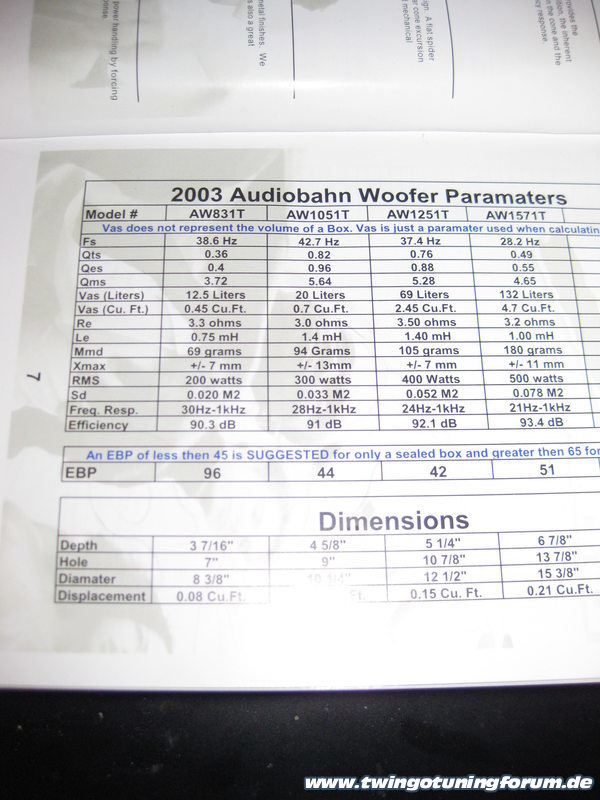 power handling by forcing
onse.
metal finishes. We
s also a great
ign. A flat spider
er cone excursion
d mechanical
rovides the
tion, the inherent
n the cone and the
cy response.
2003 Audiobahn Woofer Paramaters
Model # AW831T AW1051T AW1251T AW1571T
Vas does not represent the volume of a Box. Vas is just a paramater used when calculatin
Fs 38.6 Hz 42.7 Hz 37.4 Hz 28.2 Hz
Qts 0.36 0.82 0.76 0.49
Qes 0.4 0.96 0.88 0.55
Qms 3.72 5.64 5.28 4.65
Vas (Liters) 12.5 Liters 20 Liters 69 Liters 132 Liters
Vas (Cu. Ft.) 0.45 Cu.Ft. 0.7 Cu.Ft. 2.45 Cu.Ft. 4.7 Cu.Ft.
Re 3.3 ohms 3.0 ohms 3.50 ohms 3.2 ohms
Le 0.75 mH 1.4 mH 1.40 mH 1.00 mH
Mmd 69 grams 94 Grams 105 grams 180 grams
Xmax +/- 7 mm +/- 13mm +/- 7 mm +/- 11 mm
RMS 200 watts 300 watts 400 Watts 500 watts
Sd 0.020 M2 0.033 M2 0.052 M2 0.078 M2
Freq. Resp. 30Hz-1kHz 28Hz-1kHz 24Hz-1kHz 21Hz-1kHz
Efficiency 90.3 dB 91 dB 92.1 dB 93.4 dB
An EBP of less then 45 is SUGGESTED for only a sealed box and greater then 65 for
EBP 96 44 42 51
Dimensions
Depth 3 7/16" 4 5/8" 5 1/4" 6 7/8"
Hole 7" 9" 10 7/8" 13 7/8"
Diamater 8 3/8" 10 1/4" 12 1/2" 15 3/8"
Displacement 0.08 Cu.Ft. Ft. 0.15 Cu. Ft. 0.21 Cu.Ft.
7
www.twingotuningforum.de